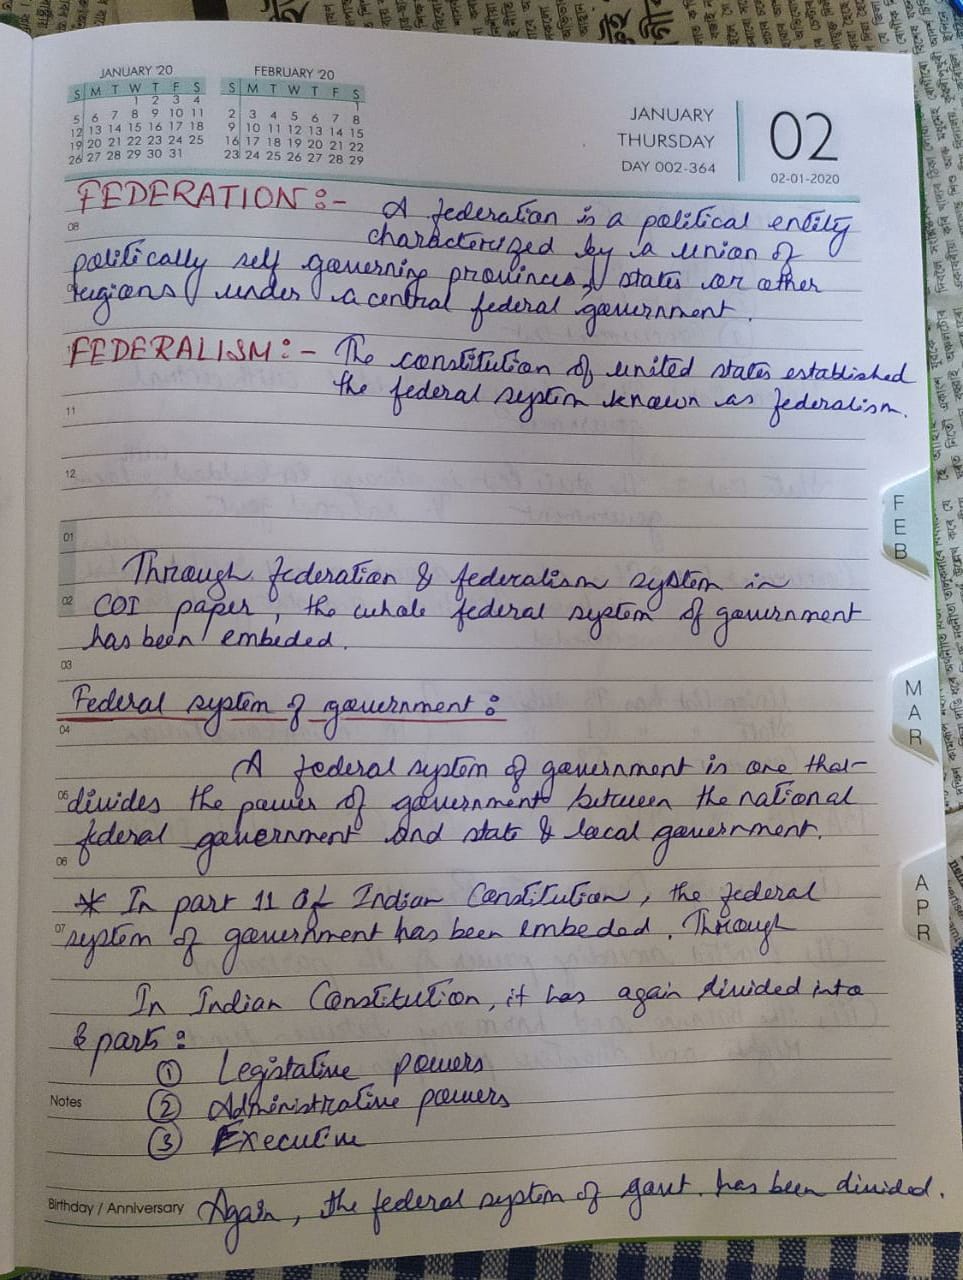 JANUARY '20
S M T W T F S
1 2 3 4
5 6 7 8 9 10 11
12 13 14 15 16 17 18
19 20 21 22 23 24 25
26 27 28 29 30 31
FEBRUARY '20
S M T W T F S
1
2 3 4 5 6 7 8
9 10 11 12 13 14 15
16 17 18 19 20 21 22
23 24 25 26 27 28 29
JANUARY
THURSDAY
DAY 002-364
02
02-01-2020
FEDERATION :- A federation is a political entity
08
characterized by a union of
politically self governing provinces, states or other
regions under a central federal government.
FEDERALISM :- The constitution of united states established
the federal system known as federalism.
11
12
01
Through federation & federalism system in
02 COI paper, the whole federal system of government
has been embeded.
03
Federal system of government :
04
A federal system of government is one that
05 divides the power of government between the national
federal government and state & local government.
06
* In part 11 of Indian Constitution, the federal
07 system of government has been embeded. Through
In Indian Constitution, it has again divided into
3 parts :
① Legislative powers
Notes ② Administrative powers
③ Executive
Birthday / Anniversary Again, the federal system of govt. has been divided.
FEB
MAR
APR